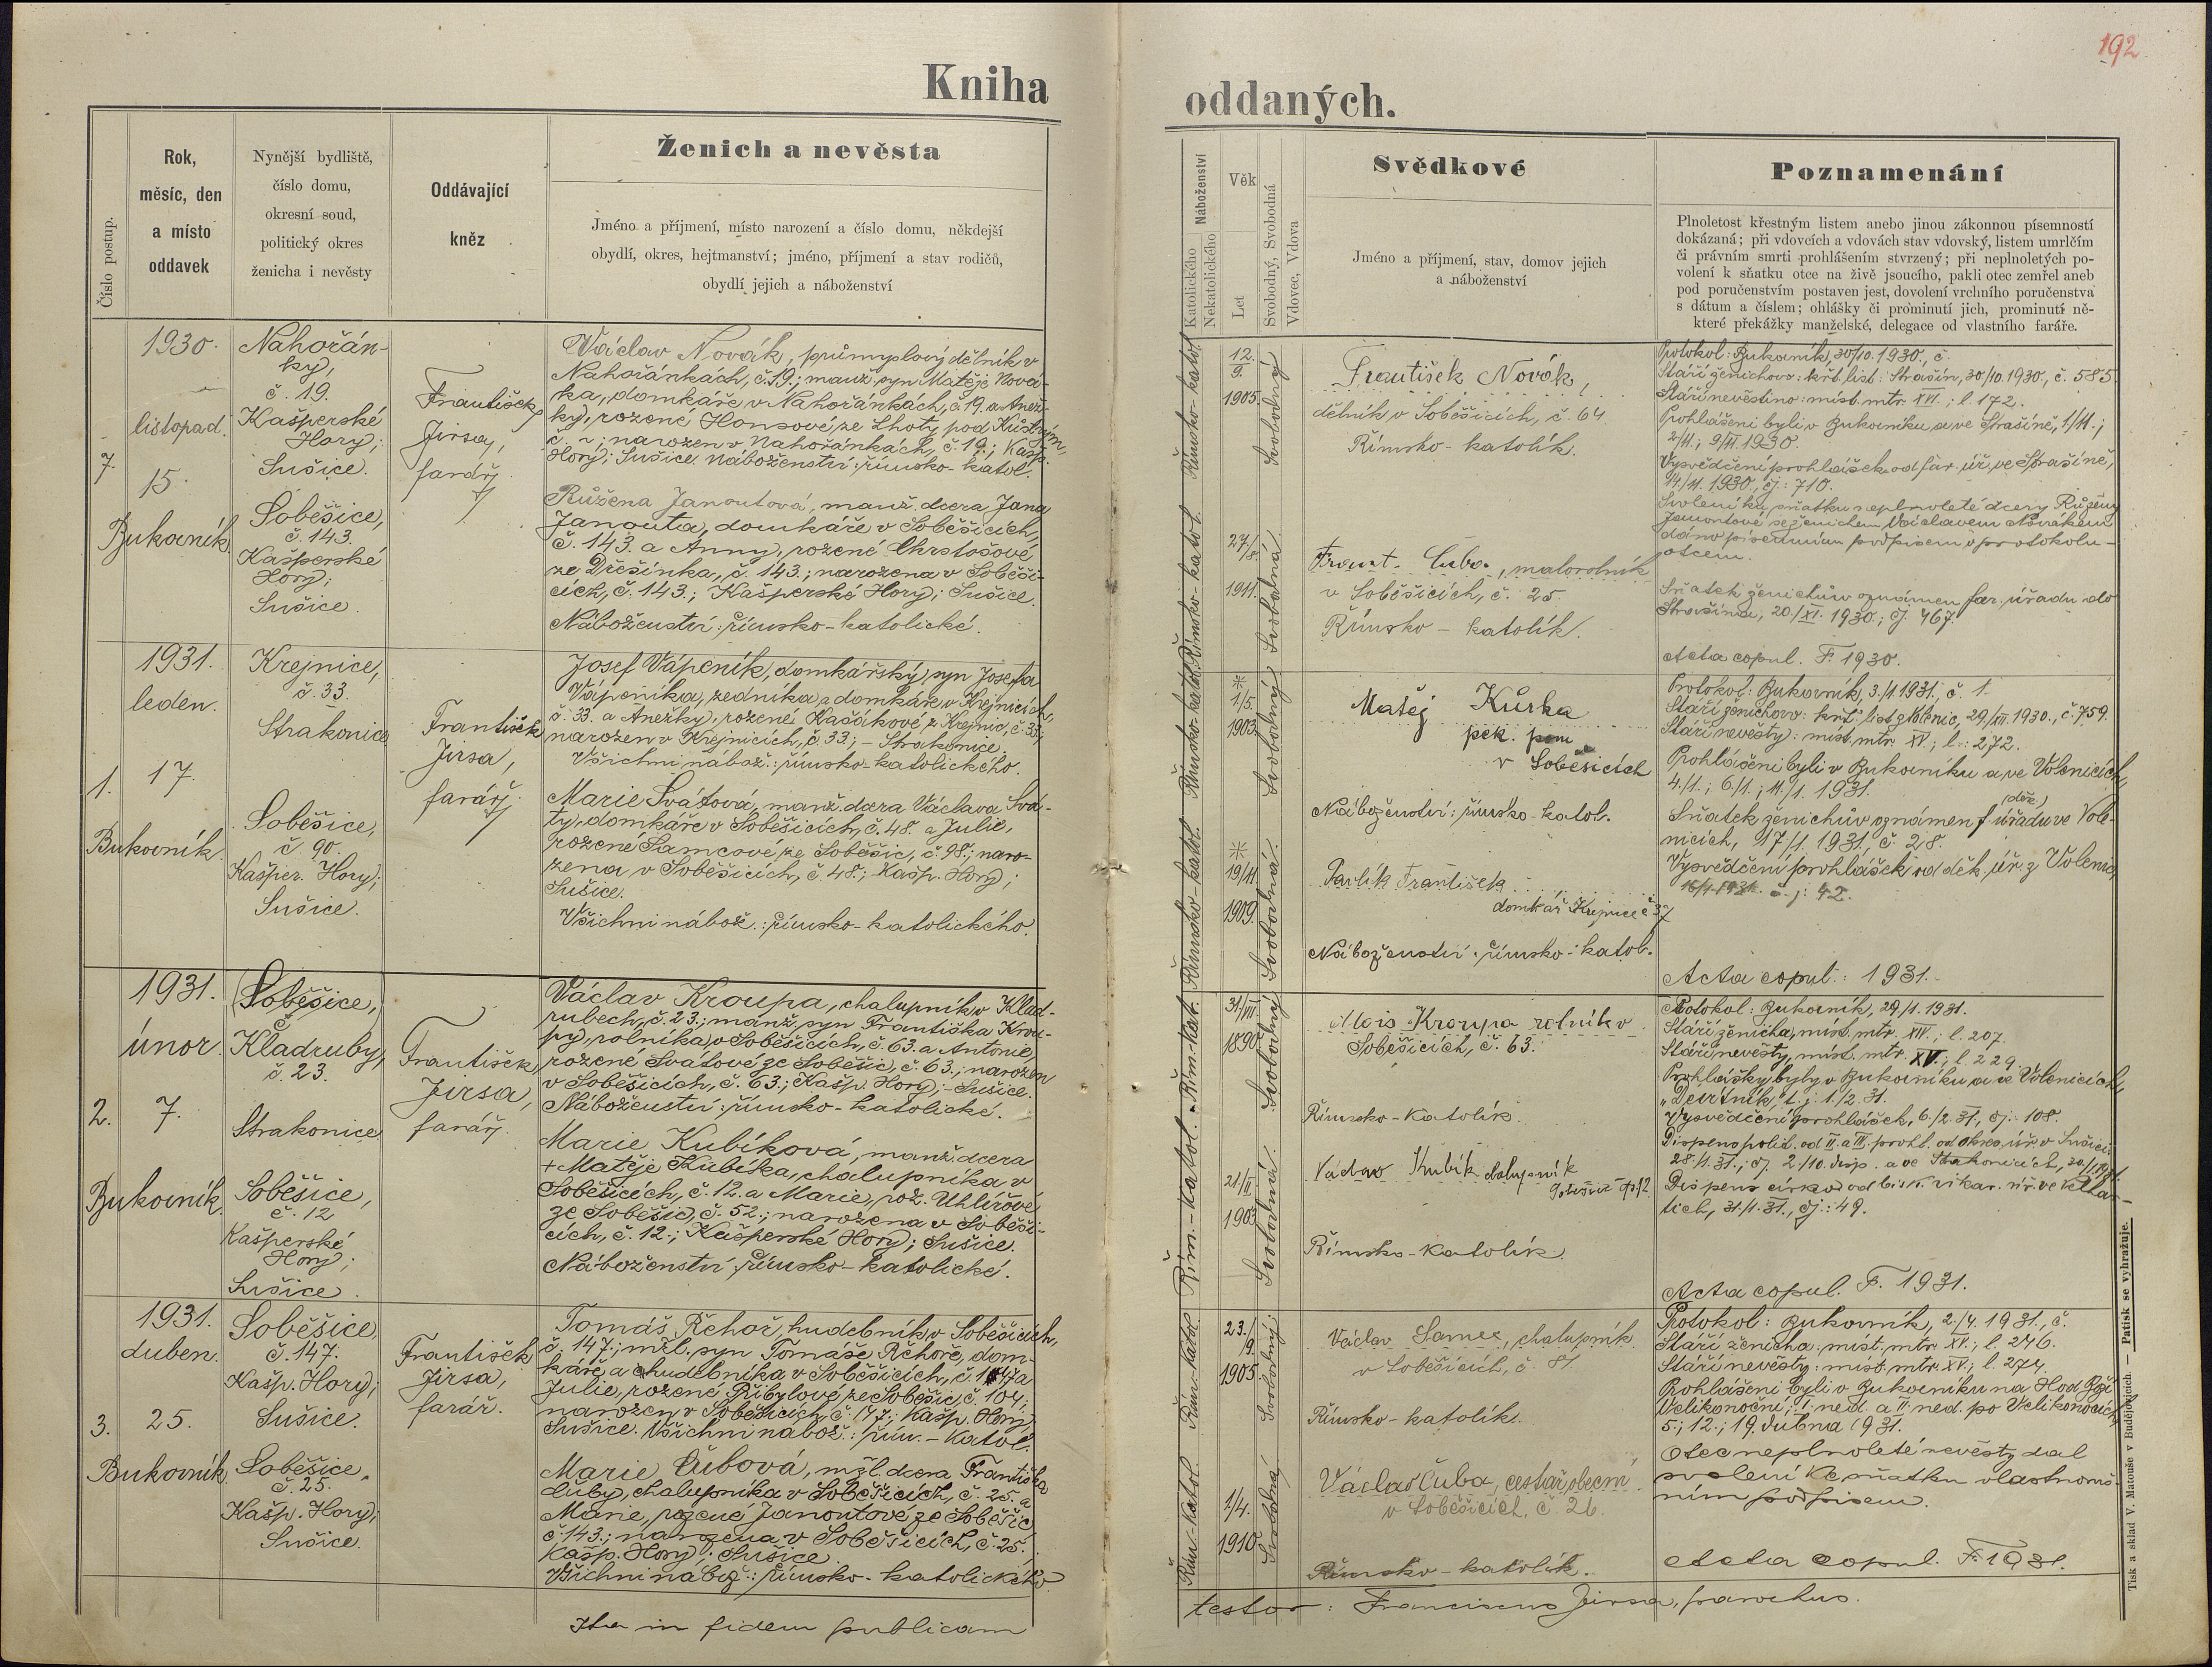 192
Kniha oddaných.
Číslo postup.
Rok,
měsíc, den
a místo
oddavek
Nynější bydliště,
číslo domu,
okresní soud,
politický okres
ženicha i nevěsty
Oddávající
kněz
Ženich a nevěsta
Jméno a příjmení, místo narození a číslo domu, někdejší
obydlí, okres, hejtmanství; jméno, příjmení a stav rodičů,
obydlí jejich a náboženství
Náboženství
Katolického
Nekatolického
Věk
Let
Svobodný, Svobodná
Vdovec, Vdova
Svědkové
Jméno a příjmení, stav, domov jejich
a náboženství
Poznamenání
Plnoletost křestným listem anebo jinou zákonnou písemností
dokázaná; při vdovcích a vdovách stav vdovský, listem umrlčím
či právním smrti prohlášením stvrzený; při neplnoletých po-
volení k sňatku otce na živě jsoucího, pakli otec zemřel aneb
pod poručenstvím postaven jest, dovolení vrchního poručenstva
s dátum a číslem; ohlášky či prominutí jich, prominutí ně-
které překážky manželské, delegace od vlastního faráře.
7.
1930.
listopad.
15.
Bukovník
Nahořán-
ky,
č. 19.
Kašperské
Hory;
Sušice.
Soběšice,
č. 143.
Kašperské
Hory;
Sušice.
František
Jirsa,
farář.
Václav Novák, průmyslový dělník v
Nahořánkách, č. 19.; manž. syn Matěje Nová-
ka, domkáře v Nahořánkách, č. 19. a Anež-
ky, rozené Honsové, ze Lhoty pod
č. ~; narozen v Nahořánkách, č. 19.; Kašp.
Hory; Sušice. Náboženství: římsko-katol.
Růžena Janoutová, manž. dcera Jana
Janouta, domkáře v Soběšicích,
č. 143. a Anny, rozené Chrstošové
ze Dřešínka, č. 143.; narozena v Soběši-
cích, č. 143.; Kašperské Hory; Sušice.
Náboženství: římsko-katolické.
Římsko-katol.
Římsko-katol.
12.
9.
1905.
27./8.
1911.
Svobodný
Svobodná
František Novák,
dělník v Soběšicích, č. 64
Římsko-katolík.
Frant. Čuba, malorolník
v Soběšicích, č. 25.
Římsko-katolík.
Protokol: Bukovník, 30/10. 1930., č.
Stáří ženichovo: křt. list: Strašín, 30/10. 1930., č. 585.
Stáří nevěstino: míst. mtr. XVI.; l. 172.
Prohlášeni byli v Bukovníku a ve Strašíně, 1/11.;
2/11.; 9/11. 1930.
Vysvědčení prohlášek od far. úř. ve Strašíně,
14./11. 1930., čj: 710.
Svolení ku sňatku neplnoleté dcery Růženy
Janoutové se ženichem Václavem Novákem
dáno písemním podpisem v protokolu
otcem.
Sňatek ženichův oznámen far. úřadu do
Strašína, 20./XI. 1930.; čj. 467.
Acta copul. F. 1930.
1.
1931.
leden.
17.
Bukovník.
Krejnice,
č. 33.
Strakonice
Soběšice,
č. 90.
Kašper. Hory;
Sušice.
František
Jirsa,
farář.
Josef Vápeník, domkářský, syn Josefa
Vápeníka, zedníka a domkáře v Krejnicích,
č. 33. a Anežky, rozené Kasákové z Krejnic, č. 33;
narozen v Krejnicích, č. 33; - Strakonice.
Všichni nábož.: římsko-katolického.
Marie Svátová, manž. dcera Václava Svá-
ty, domkáře v Soběšicích, č. 48. a Julie,
rozené Samcové ze Soběšic, č. 98.; naro-
zena v Soběšicích, č. 48.; Kašp. Hory;
Sušice.
Všichni nábož.: římsko-katolického.
Římsko-katol.
Římsko-katol.
*
1/5.
1903.
*
19/11
1909.
Svobodný
Svobodná.
Matěj Kůrka
pek. pom
v Soběšicích
Náboženství: římsko-katol.
Pavlík František
domkář Krejnice č 37
Náboženství: římsko-katol.
Protokol: Bukovník, 3./1. 1931., č. 1.
Stáří ženichovo: křt. list z Volenic, 29./XII. 1930., č. 759.
Stáří nevěsty: míst. mtr. XV.; l.: 272.
Prohlášeni byli v Bukovníku a ve Volenicích,
4./1.; 6./1.; 11./1. 1931.
(děk.)
Sňatek ženichův oznámen f. úřadu ve Vole-
nicích, 17/1. 1931., č. 28.
Vysvědčení prohlášek od děk. úř. z Volenic,
16/1. 1931. č. j: 42.
Acta copul.: 1931.
2.
1931.
únor.
7.
Bukovník.
(Soběšice,
č
Kladruby,
č. 23.
Strakonice
Soběšice,
č. 12
Kašperské
Hory;
Sušice.
František
Jirsa,
farář.
Václav Kroupa, chalupník v Klad-
rubech, č. 23.; manž. syn Františka Krou-
py, rolníka, v Soběšicích, č. 63. a Antonie,
rozené Svátové ze Soběšic, č. 63.; narozen
v Soběšicích, č. 63.; Kašp. Hory; - Sušice.
Náboženství: římsko-katolické.
Marie Kubíková, manž. dcera
+ Matěje Kubíka, chalupníka v
Soběšicích, č. 12. a Marie, roz. Uhlířové
ze Soběšic, č. 52.; narozena v Soběši-
cích, č. 12.; Kašperské Hory; Sušice.
Náboženství: římsko-katolické.
Řím.-katol.
Řím.-kat.
31/VII
1890
21/II
1903
Svobodný
Svobodná.
Alois Kroupa rolník v
Soběšicích, č. 63.
Římsko-katolík.
Václav Kubík chalupník
Soběšice čp 12.
Římsko-katolík.
Protokol: Bukovník, 29./1. 1931.
Stáří ženicha, míst. mtr. XIV.; l. 207.
Stáří nevěsty, míst. mtr. XV.; l. 229.
Prohlášky byly v Bukovníku a ve Volenicích,
t. j. 1./2. 31.
Vysvědčení prohlášek, 6./2. 31., čj: 108.
Dispens polit. od II. a III. prohl. od okres. úř. v Sušici:
28./1. 31.; čj. 2/10. disp. a ve Strakonicích, 30./1. 1931.
Dispens círk. od bisk. vikar. úř. ve
31./1. 31., čj.: 49.
Acta copul. F. 1931.
3.
1931.
duben.
25.
Bukovník.
Soběšice,
č. 147.
Kašp. Hory;
Sušice.
Soběšice,
č. 25.
Kašp. Hory;
Sušice.
František
Jirsa,
farář.
Tomáš Řehoř, hudebník, v Soběšicích,
č. 147.; mžl. syn Tomáše Řehoře, dom-
káře, a hudebníka v Soběšicích, č. 147 a
Julie, rozené Přibylové, ze Soběšic, č. 104;
narozen v Soběšicích, č. 147.; Kašp. Hory;
Sušice. Všichni nábož.: řím.-katol.
Marie Čubová, mžl. dcera Františka
Čuby, chalupníka v Soběšicích, č. 25. a
Marie, rozené Janoutové ze Soběšic
č. 143.; narozena v Soběšicích, č. 25.;
Kašp. Hory; Sušice.
Všichni nábož.: římsko-katolického.
Řím.-katol.
Řím.-katol.
23./
9.
1905
1/4.
1910
Svobodný.
Svobodná
Václav Samec, chalupník
v Soběšicích, č 81
Římsko-katolík.
Václav Čuba, cestář obecní
v Soběšicích, č 26.
Římsko-katolík.
Protokol: Bukovník, 2./4. 1931., č.
Stáří ženicha: míst. mtr. XV.; l. 246.
Stáří nevěsty: míst. mtr. XV.; l. 274.
Prohlášeni byli v Bukovníku na Hod Boží
Velikonoční; I. ned. a II. ned. po Velikonocích,
5.; 12.; 19. dubna 1931.
Otec neplnoleté nevěsty dal
svolení ke sňatku vlastnoruč-
ním podpisem.
Acta copul. F. 1931.
Ita in fidem publicam testor: Franciscus Jirsa, parochus.
Tisk a sklad V. Matouše v Budějovicích. — Patisk se vyhražuje.